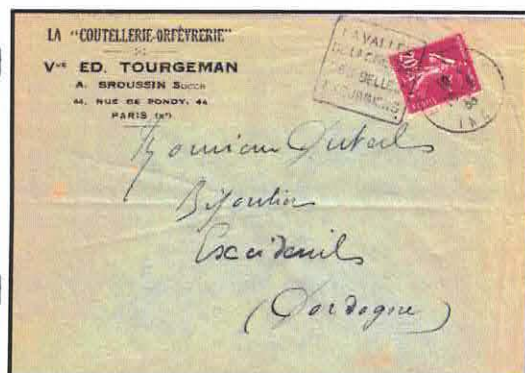 LA "COUTELLERIE-ORFÈVRERIE"
Vve ED. TOURGEMAN
A. BROUSSIN Succr
44, RUE DE BONDY, 44
PARIS (Xe)
LA VALLEE
DE LA
SES BELLES
20c
Monsieur
Bijoutier
Excideuil
(Dordogne)